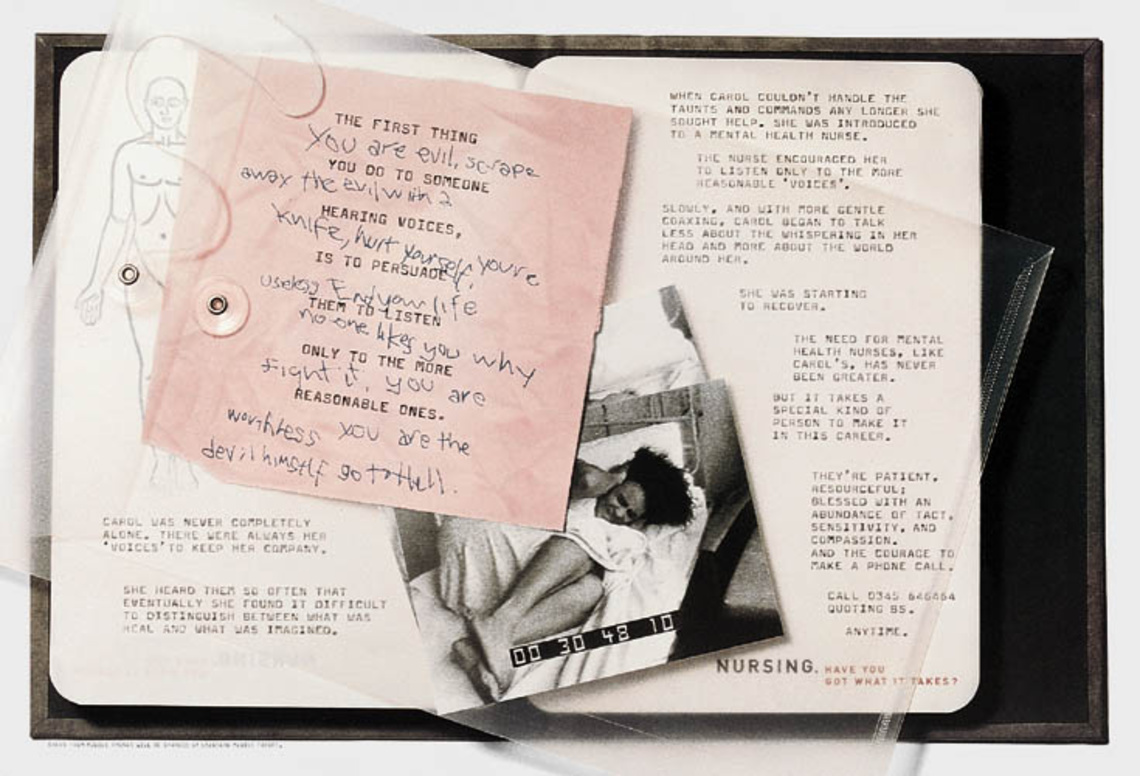 THE FIRST THING
You are evil, scrape
YOU DO TO SOMEONE
away the evil with a
HEARING VOICES,
knife, hurt yourself, youre
IS TO PERSUADE
useless End your life
THEM TO LISTEN
no-one likes you why
ONLY TO THE MORE
Fight it, you are
REASONABLE ONES.
worthless you are the
devil himself go to Hell.
CAROL WAS NEVER COMPLETELY
ALONE. THERE WERE ALWAYS HER
'VOICES' TO KEEP HER COMPANY.
SHE HEARD THEM SO OFTEN THAT
EVENTUALLY SHE FOUND IT DIFFICULT
TO DISTINGUISH BETWEEN WHAT WAS
REAL AND WHAT WAS IMAGINED.
00 30 48 10
WHEN CAROL COULDN'T HANDLE THE
TAUNTS AND COMMANDS ANY LONGER SHE
SOUGHT HELP. SHE WAS INTRODUCED
TO A MENTAL HEALTH NURSE.
THE NURSE ENCOURAGED HER
TO LISTEN ONLY TO THE MORE
REASONABLE 'VOICES'.
SLOWLY, AND WITH MORE GENTLE
COAXING, CAROL BEGAN TO TALK
LESS ABOUT THE WHISPERING IN HER
HEAD AND MORE ABOUT THE WORLD
AROUND HER.
SHE WAS STARTING
TO RECOVER.
THE NEED FOR MENTAL
HEALTH NURSES, LIKE
CAROL'S, HAS NEVER
BEEN GREATER.
BUT IT TAKES A
SPECIAL KIND OF
PERSON TO MAKE IT
IN THIS CAREER.
THEY'RE PATIENT,
RESOURCEFUL;
BLESSED WITH AN
ABUNDANCE OF TACT,
SENSITIVITY, AND
COMPASSION.
AND THE COURAGE TO
MAKE A PHONE CALL.
CALL 0345 646464
QUOTING BS.
ANYTIME.
NURSING. HAVE YOU
GOT WHAT IT TAKES?